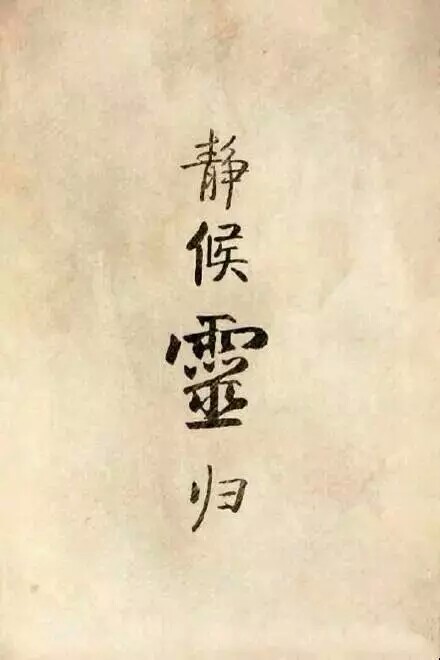 静候靈归